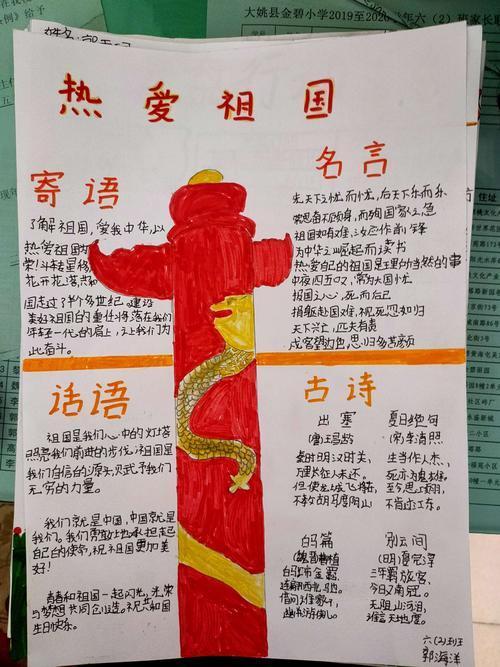 大姚县金碧小学2019至2020
年六（2）班家长
热爱祖国
寄语
了解祖国，爱我中华，以
热爱祖国为
荣！斗转星移
花开花落，共和
国走过了半个多世纪，建设
美好祖国的重任将落在我们
年轻一代的肩上，让我们为
此奋斗。
名言
先天下之忧而忧，后天下乐而乐
常思奋不顾身，而殉国家之急
祖国如有难，汝应作前锋
为中华之崛起而读书
热爱自己的祖国是理所当然的事
中夜四五叹，常为大国忧
报国之心，死而后已
捐躯赴国难，视死忽如归
天下兴亡，匹夫有责
戍客望边色，思归多苦颜
话语
祖国是我们心中的灯塔
照亮我们前进的步伐，祖国是
我们自信的源头，贝武予我们
无穷的力量。
我们就是中国，中国就是
我们。我们勇敢地承担起
自己的使命，祝祖国更加美
好！
青春和祖国一起闪光，光荣
与梦想共同创造。祝共和国
生日快乐。
古诗
出塞
（唐）王昌龄
秦时明月汉时关，
万里长征人未还。
但使龙城飞将在，
不教胡马度阴山
夏日绝句
（宋）李清照
生当作人杰，
死亦为鬼雄，
至今思项羽，
不肯过江东。
白马篇
白马饰金羁，
连翩西北驰。
借问谁家子，
幽并游侠儿。
别云间
（明）夏完淳
三年羁旅客，
今日又南冠。
无限山河泪，
谁言天地宽。
六（2）班
郭海洋